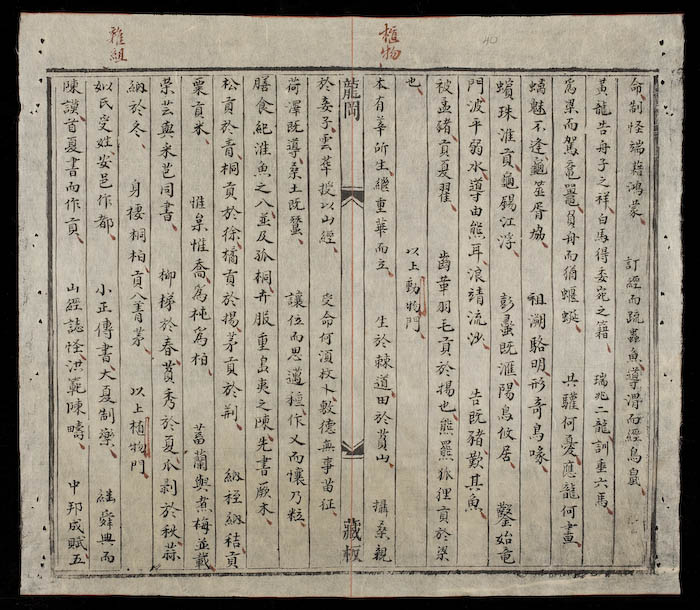 植物
雜組
40
命制怪端藉鴻蒙　訂經而疏蟲魚導渭而經鳥鼠
黃龍告舟子之祥白馬得委宛之籍　瑞兆二龍訓垂六馬
為梁而駕黿鼉負舟而猶蝘蜓　共驩何憂應龍何畫
螭魅不逢龜筮胥協　祖溯駱明形奇鳥喙
蠙珠淮貢龜錫江浮　彭蠡既瀦陽鳥攸居　鑿始竜
門波平弱水導由熊耳浪靖流沙　告既豬歎其魚
被孟豬貢夏翟　齒革羽毛貢於揚也熊羆狐狸貢於梁
也　以上動物門
本有莘所生繼重華而立　生於棘道田於賁山　攝桑親
龍岡　藏板
於委子雲華授以山經　交命何須枚卜敷德無事苗征
荷澤既導桑土既蠶　讓位而思邁種作乂而懷乃粒
膳食紀淮魚之八並及孤桐卉服重島夷之陳先書厥木
松貢於青桐貢於徐橘貢於揚茅貢於荊　納秷納秸貢
粟貢米　惟喬為杶為柏　菖蘭與煮梅並載
榮芸與采芑同書　柳梯於春莠秀於夏瓜剝於秋蒜
納於冬　身棲桐柏貢入菁茅　以上植物門
姒氏受姓安邑作都　小正傳書大夏制樂　繼舜興而
陳謨首夏書而作貢　山經誌怪洪範陳疇　中邦成賦五